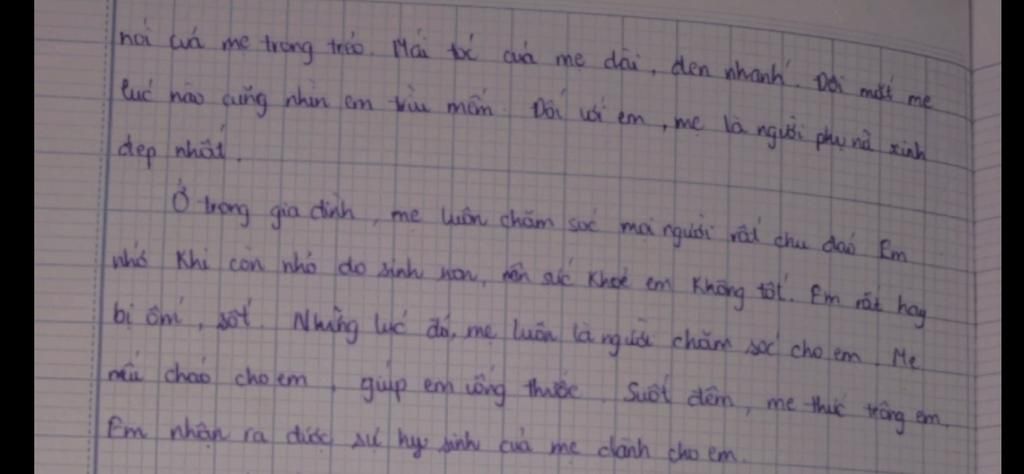 nói của mẹ trong trẻo. Mái tóc của mẹ dài, đen nhánh. Đôi mắt mẹ
lúc nào cũng nhìn em trìu mến. Đối với em, mẹ là người phụ nữ xinh
đẹp nhất.
Ở trong gia đình, mẹ luôn chăm sóc mọi người rất chu đáo. Em
nhớ khi còn nhỏ do sinh non, nên sức khoẻ em không tốt. Em rất hay
bị ốm, sốt. Những lúc đó, mẹ luôn là người chăm sóc cho em. Mẹ
nấu cháo cho em, giúp em uống thuốc. Suốt đêm, mẹ thức trông em.
Em nhận ra được sự hy sinh của mẹ dành cho em.